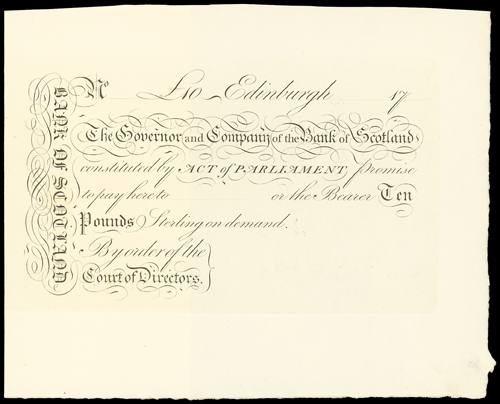 No £10 Edinburgh 17
BANK OF SCOTLAND
The Governor and Company of the Bank of Scotland
constituted by ACT of PARLIAMENT, promise
to pay here to or the Bearer Ten
Pounds Sterling on demand.
By order of the
Court of Directors.